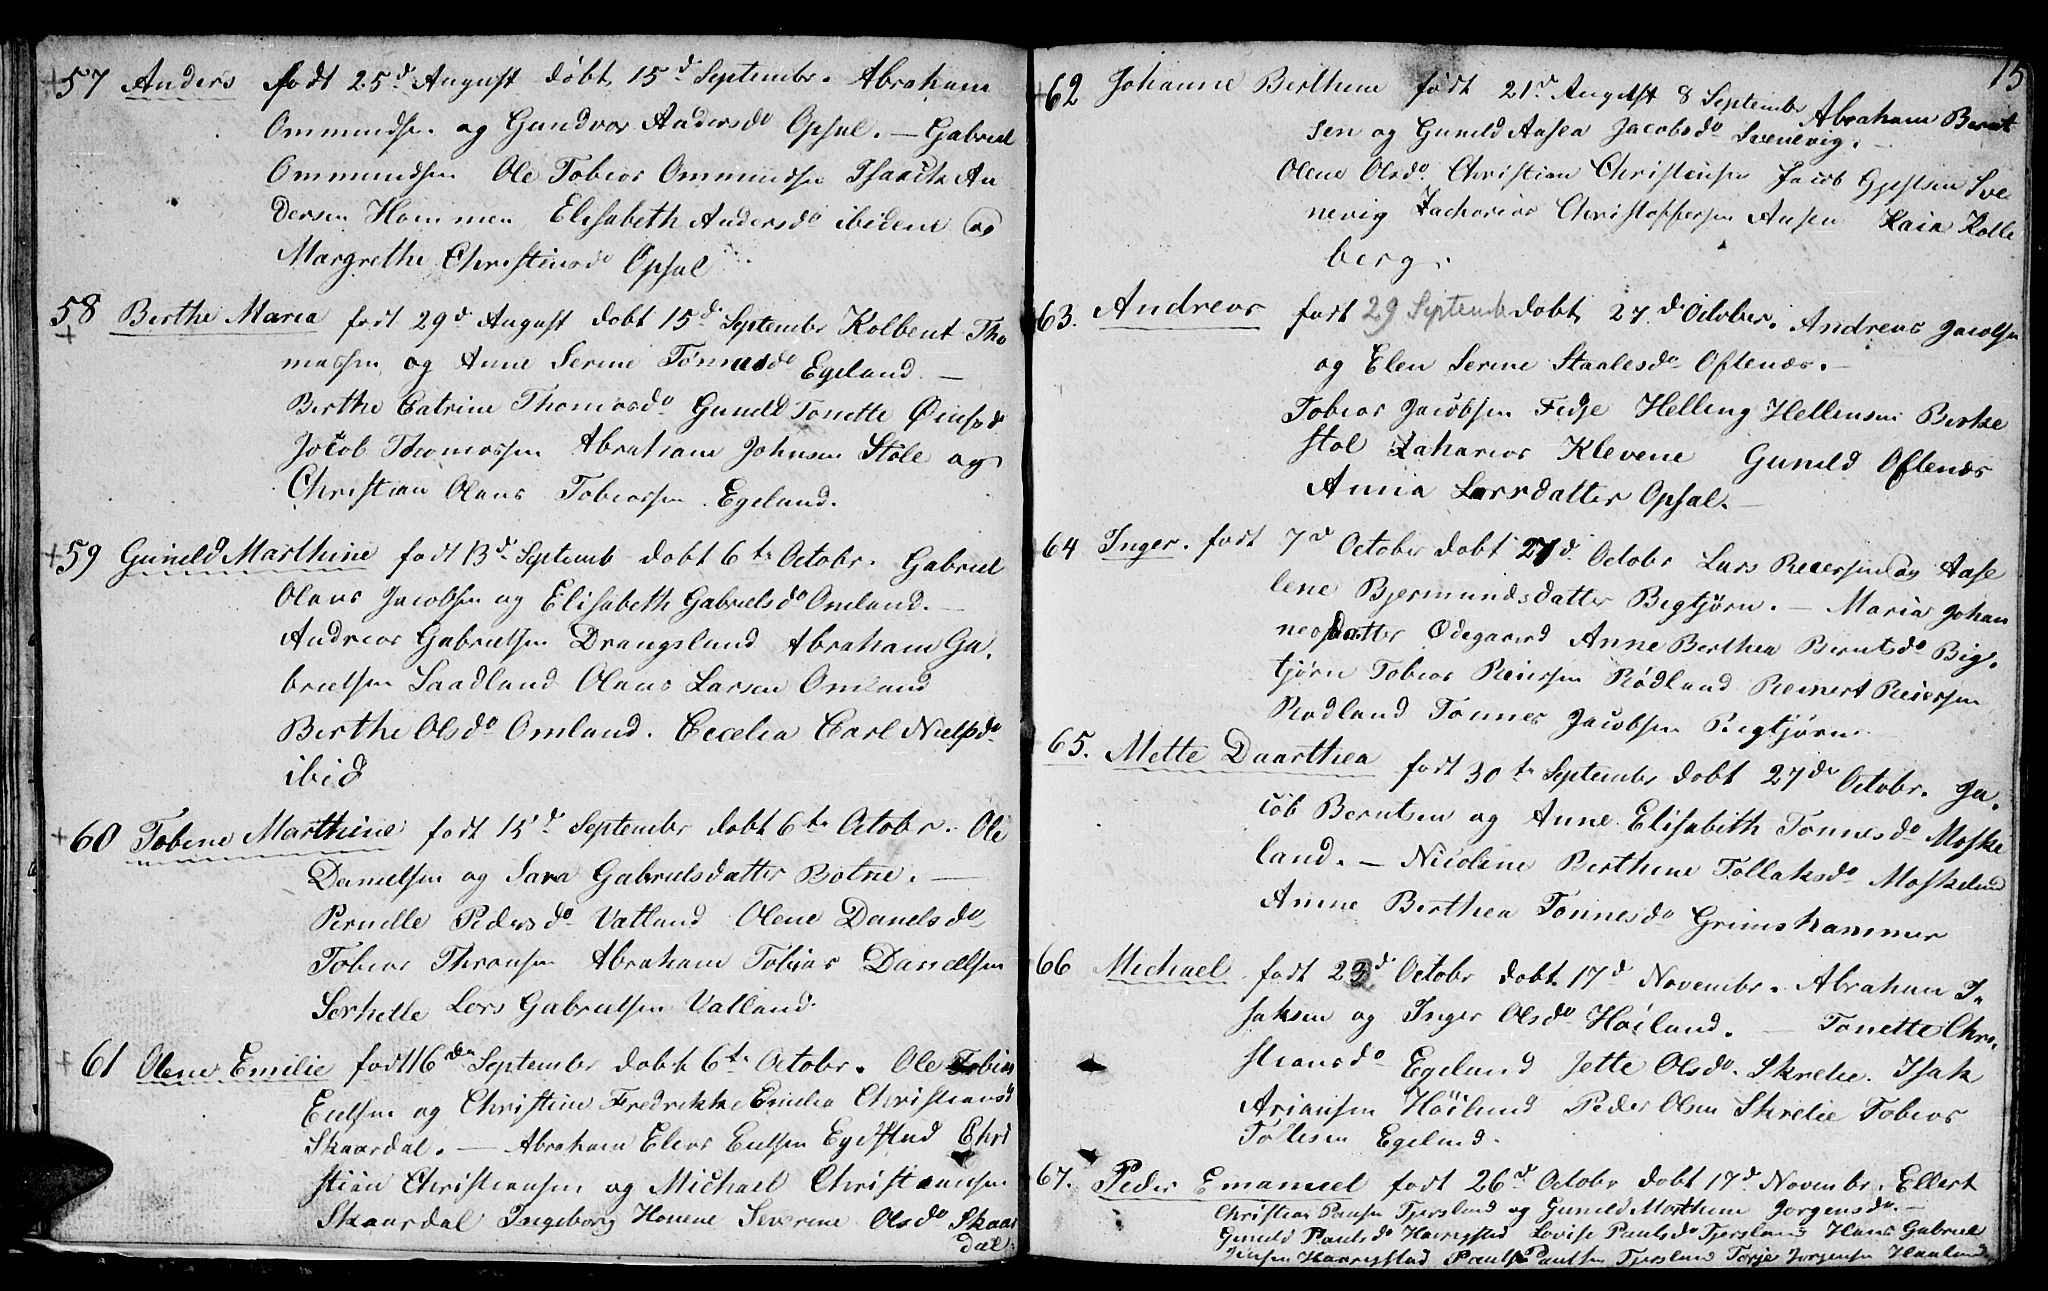 57 Anders født 25d August døbt 15d Septembr. Abraham
Ommundsen og Gundvor Andersdo Opsal. — Gabriel
Ommundsen Ole Tobias Ommundsen Isaack An
dersen Hammen Elisabeth Andersdo ibidem og
Margrethe Christensdo Opsal
58 Berthe Maria født 29d August døbt 15d Septembr Kolbent Tho
massen og Anne Serine Tønnesdo Egeland —
Berthe Catrine Thomasdo Guneld Tonette
Jacob Thomassen Abraham Johnsen Støle og
Christian Olaus Tobiassen Egeland.
59 Guneld Marthine født 13d Septemb døbt 6te Octobr. Gabriel
Olaus Jacobsen og Elisabeth Gabrielsdo Omland. —
Andreas Gabrielsen Drangsland Abraham Ga,
brielsen Saadland Olaus Larsen Omland
Berthe Olsdo Omland. Cecelia Carl Nielsdo
ibid
60 Tobine Marthine født 15d Septembr døbt 6te Octobr. Ole
Danielsen og Sara Gabrielsdatter Botne. —
Pernille Pedersdo Vatland Olene Danelsdo
Tobias Thronsen Abraham Tobias Danielsen
Lars Gabrielsen Vatland
61 Olene Emilie født 16de Septembr døbt 6te Octobr. Ole Tobias
Eielsen og Christine Fredrikke Emilia Christiansd
Skaardal. — Abraham Elias Eielsen Egestad Chri
stian Christiansen og Michael Christiansen
Skaardal Ingeborg Honene Severine Olsdo Skaar
dal.
15
62 Johanne Berthine født 21d August 8 Septembr Abraham Bernt
sen og Guneld Aasea Jacobsdo Svenevig. —
Olene Olsdo Christian Christensen Jacob Gjestsen Sve
nevig Zacharias Christophersen Aasen Kaia Kolle
berg.
63. Andreas født 29 Septemb døbt 27de October. Andreas Jacobsen
og Elen Serine Staalesdo Oftenæs. —
Tobias Jacobsen Fedje Helling Hellensen Birke
støl Zakarias Klevene Guneld Oftenæs
Anna Larsdatter Opsal. —
64 Inger. født 7d October døbt 27d. Octobr Lars Reiersen og Aase
lene Bjermundsdatter Bigtjørn. — Maria Johan
nesdatter Ødegaard Anne Berthea Berntsdo Big,
tjørn Tobias Reiersen Rødland Reinert Reiersen
Rødland Tønnes Jacobsen Bigtjørn
65. Mette Daarthea født 30te Septembr døbt 27de Octobr. Ja,
cob Berntsen og Anne Elisabeth Tønnesdo Moske
land. — Nicoline Berthine Tollaksdo Moskeland
Anne Berthea Tønnesdo Grimshammer
66 Michael født 23d Octobr døbt 17d Novembr. Abraham I,
saksen og Inger Olsdo Høiland. — Tonette Chri,
stiansdo Egeland Jette Olsdo Skrelie. Isak
Ariansen Høiland Peder Olsen Skrelie Tobias
Tollesen Egeland.
67. Peder Emanuel født 26d Octobr døbt 17d Novembr. Ellert
Christian Paulsen Tjersland og Guneld Marthine Jørgensdo. —
Guneld Paulsdo Haarigstad Lovise Paulsdo Tjersland Hans Gabriel
Jensen Haarigstad Paul Paulsen Tjersland Torje Jørgensen Haaland